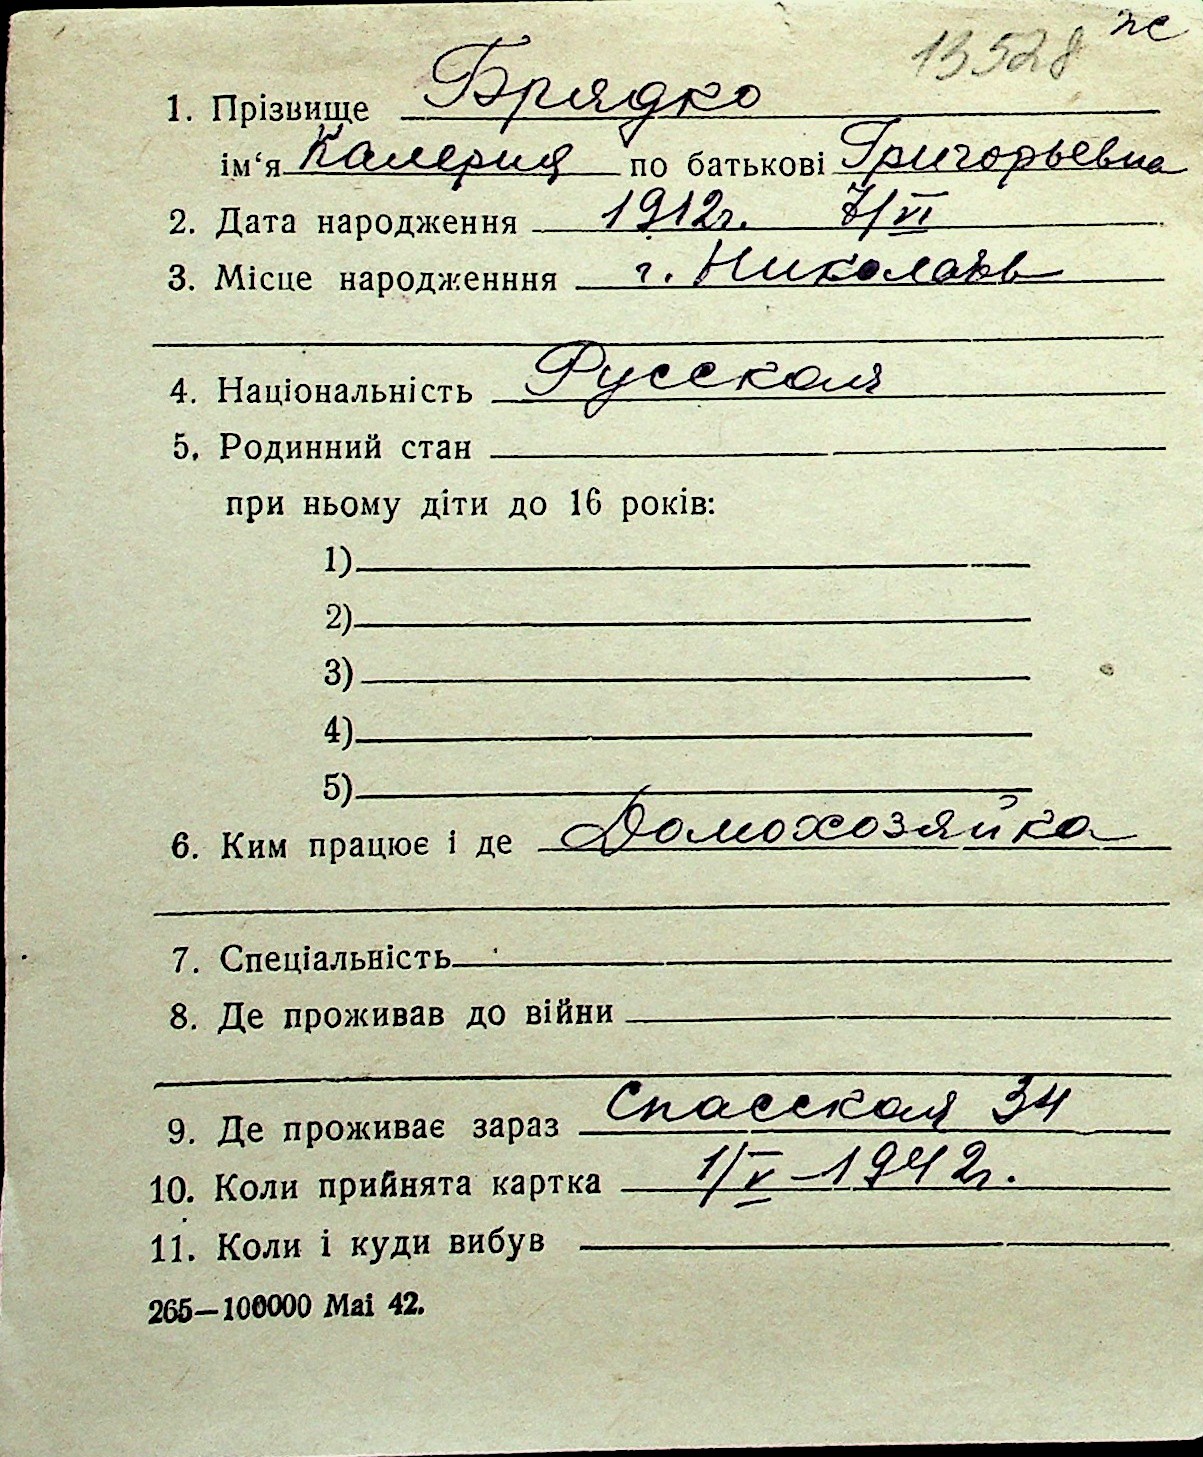 13528 ж
1. Прізвище Брядко
ім‘я Калерия по батькові Григорьевна
2. Дата народження 1912г. 7/VI
3. Місце народженння г. Николаев
4. Національність Русская
5. Родинний стан
при ньому діти до 16 років:
1)
2)
3)
4)
5)
6. Ким працює і де Домохозяйка
7. Спеціальність
8. Де проживав до війни
9. Де проживає зараз Спасская 34
10. Коли прийнята картка 1/V-1942г.
11. Коли і куди вибув
265—100000 Mai 42.